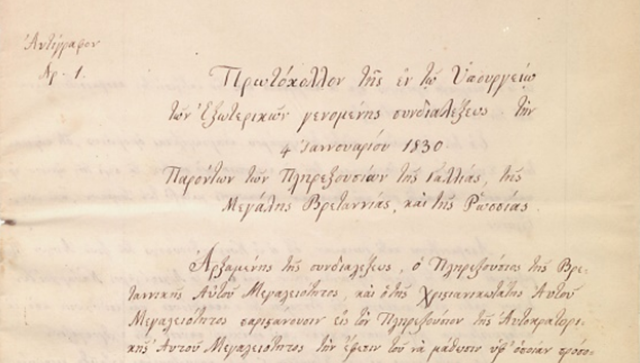 Αντίγραφον
Νρ. 1.
Πρωτόκολλον τῆς ἐν τῷ Ὑπουργείῳ
τῶν Ἐξωτερικῶν γενομένης συνδιαλέξεως τὴν
4 Ἰαννουαρίου 1830
Παρόντων τῶν Πληρεξουσίων τῆς Γαλλίας, τῆς
Μεγάλης Βρεταννίας, καὶ τῆς Ῥωσσίας.
Ἀρξαμένης τῆς συνδιαλέξεως, ὁ Πληρεξούσιος τῆς Βρε-
ταννικῆς Αὐτοῦ Μεγαλειότητος, καὶ ὁ τῆς Χριστιανικωτάτης Αὐτοῦ
Μεγαλειότητος παριστάνουσιν εἰς τὸν Πληρεξούσιον τῆς Αὐτοκρατορι-
κῆς Αὐτοῦ Μεγαλειότητος τὴν ἔφεσιν τοῦ νὰ μάθωσιν ὑφ' ὁποίαν